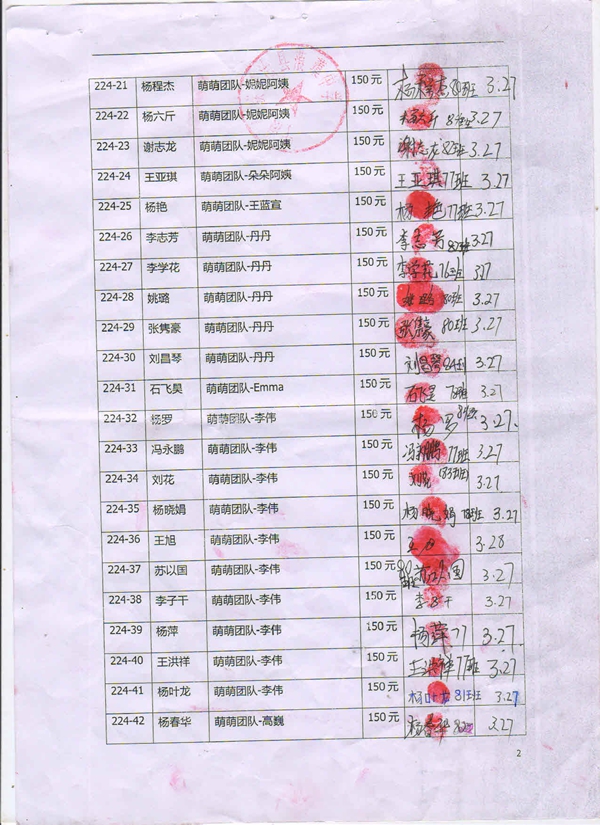 224-21 杨程杰 萌萌团队-妮妮阿姨 150元 杨程杰80班 3.27
224-22 杨六斤 萌萌团队-妮妮阿姨 150元 杨六斤 3.27
224-23 谢志龙 萌萌团队-妮妮阿姨 150元 谢志龙82班 3.27
224-24 王亚琪 萌萌团队-朵朵阿姨 150元 王亚琪77班 3.27
224-25 杨艳 萌萌团队-王蓝宣 150元 杨艳77班 3.27
224-26 李志芳 萌萌团队-丹丹 150元 李志芳82班 3.27
224-27 李学花 萌萌团队-丹丹 150元 李学花76班 3.27
224-28 姚璐 萌萌团队-丹丹 150元 姚璐80班 3.27
224-29 张隽豪 萌萌团队-丹丹 150元 张隽豪80班 3.27
224-30 刘昌琴 萌萌团队-丹丹 150元 刘昌琴84班 3.27
224-31 石飞昊 萌萌团队-Emma 150元 石飞昊 3.27
224-32 杨罗 萌萌团队-李伟 150元 杨罗 3.27.
224-33 冯永鹏 萌萌团队-李伟 150元 冯永鹏77班 3.27
224-34 刘花 萌萌团队-李伟 150元 刘花 3.27
224-35 杨晓娟 萌萌团队-李伟 150元 杨晓娟78班 3.27
224-36 王旭 萌萌团队-李伟 150元 王旭 3.28
224-37 苏以国 萌萌团队-李伟 150元 苏以国 3.27
224-38 李子干 萌萌团队-李伟 150元 李子干 3.27
224-39 杨萍 萌萌团队-李伟 150元 杨萍77 3.27
224-40 王洪祥 萌萌团队-李伟 150元 王洪祥77班 3.27
224-41 杨叶龙 萌萌团队-李伟 150元 杨叶龙81班班 3.27
224-42 杨春华 萌萌团队-高巍 150元 杨春华82 3.27
2